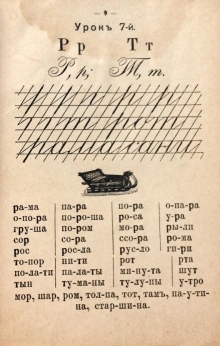 — 9 —
Урокъ 7-й.
Рр Тт
Р, р; Т, т.
р р р р р
т т рот
рама сани
ра-ма па-ра по-ра о-па-ра
о-по-ра по-ро-ша ро-са у-ра
гру-ша по-ром мо-ра ры-ли
сор со-ра ссо-ра ро-ма
рос рос-ла рус-ло ги-ри
то-пор ни-ти рот рта
по-ла-ти па-ла-ты ми-ну-та шут
тын ту-ма-ны ту-лу-пы у-тро
мор, шар, ром, тол-па, тот, тамъ, па-у-ти-
на, стар-ши-на.